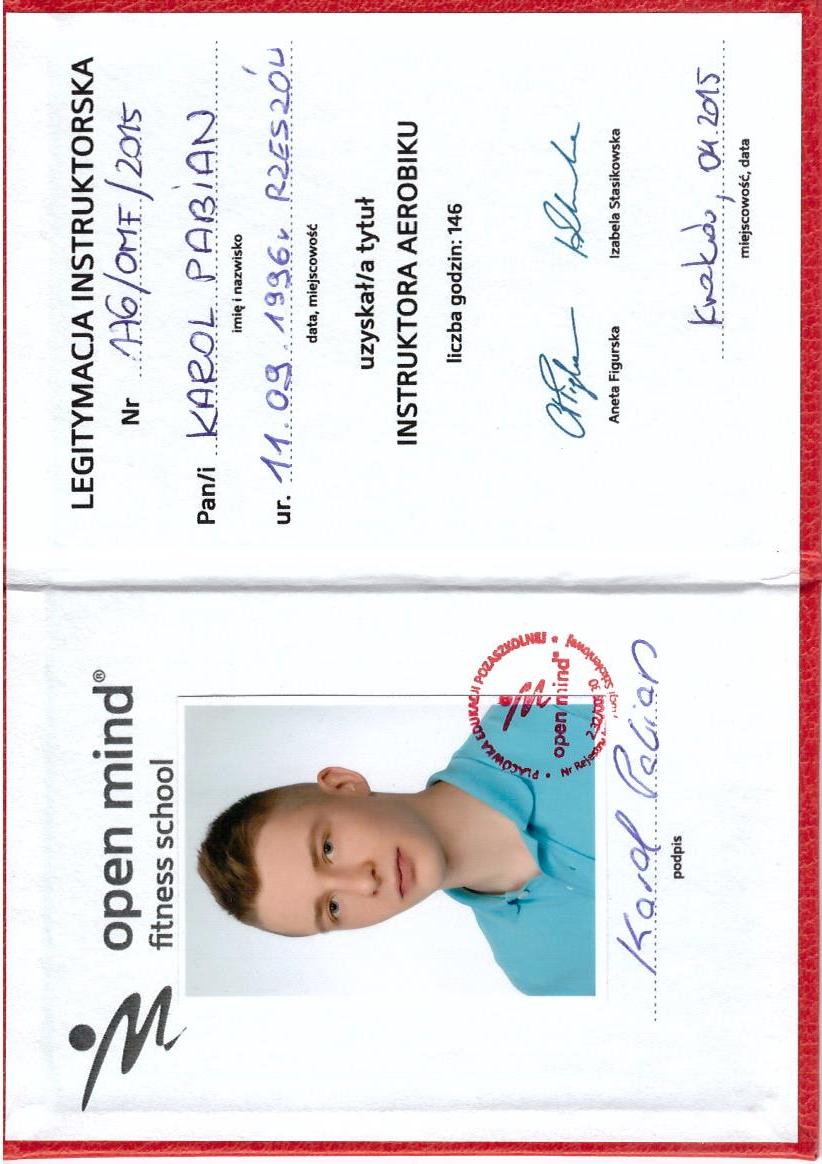 open mind®
fitness school
PLACÓWKA EDUKACJI POZASZKOLNEJ
open mind®
Karol Pabian
podpis
LEGITYMACJA INSTRUKTORSKA
Nr 176/OMF/2015
Pan/i KAROL PABIAN
imię i nazwisko
ur. 11.09.1996r RZESZÓW
data, miejscowość
uzyskał/a tytuł
INSTRUKTORA AEROBIKU
liczba godzin: 146
Aneta Figurska Izabela Stasikowska
Kraków, 04.2015
miejscowość, data